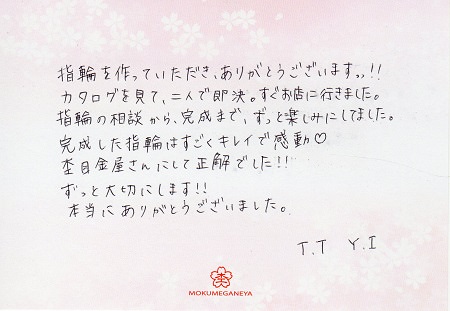 指輪を作っていただき、ありがとうございます。。!!
カタログを見て、二人で即決。すぐお店に行きました。
指輪の相談から、完成まで、ずっと楽しみにしてました。
完成した指輪はすごくキレイで感動♡
杢目金屋さんにして正解でした!!
ずっと大切にします!!
本当にありがとうございました。
T.T Y.I
杢
MOKUMEGANEYA